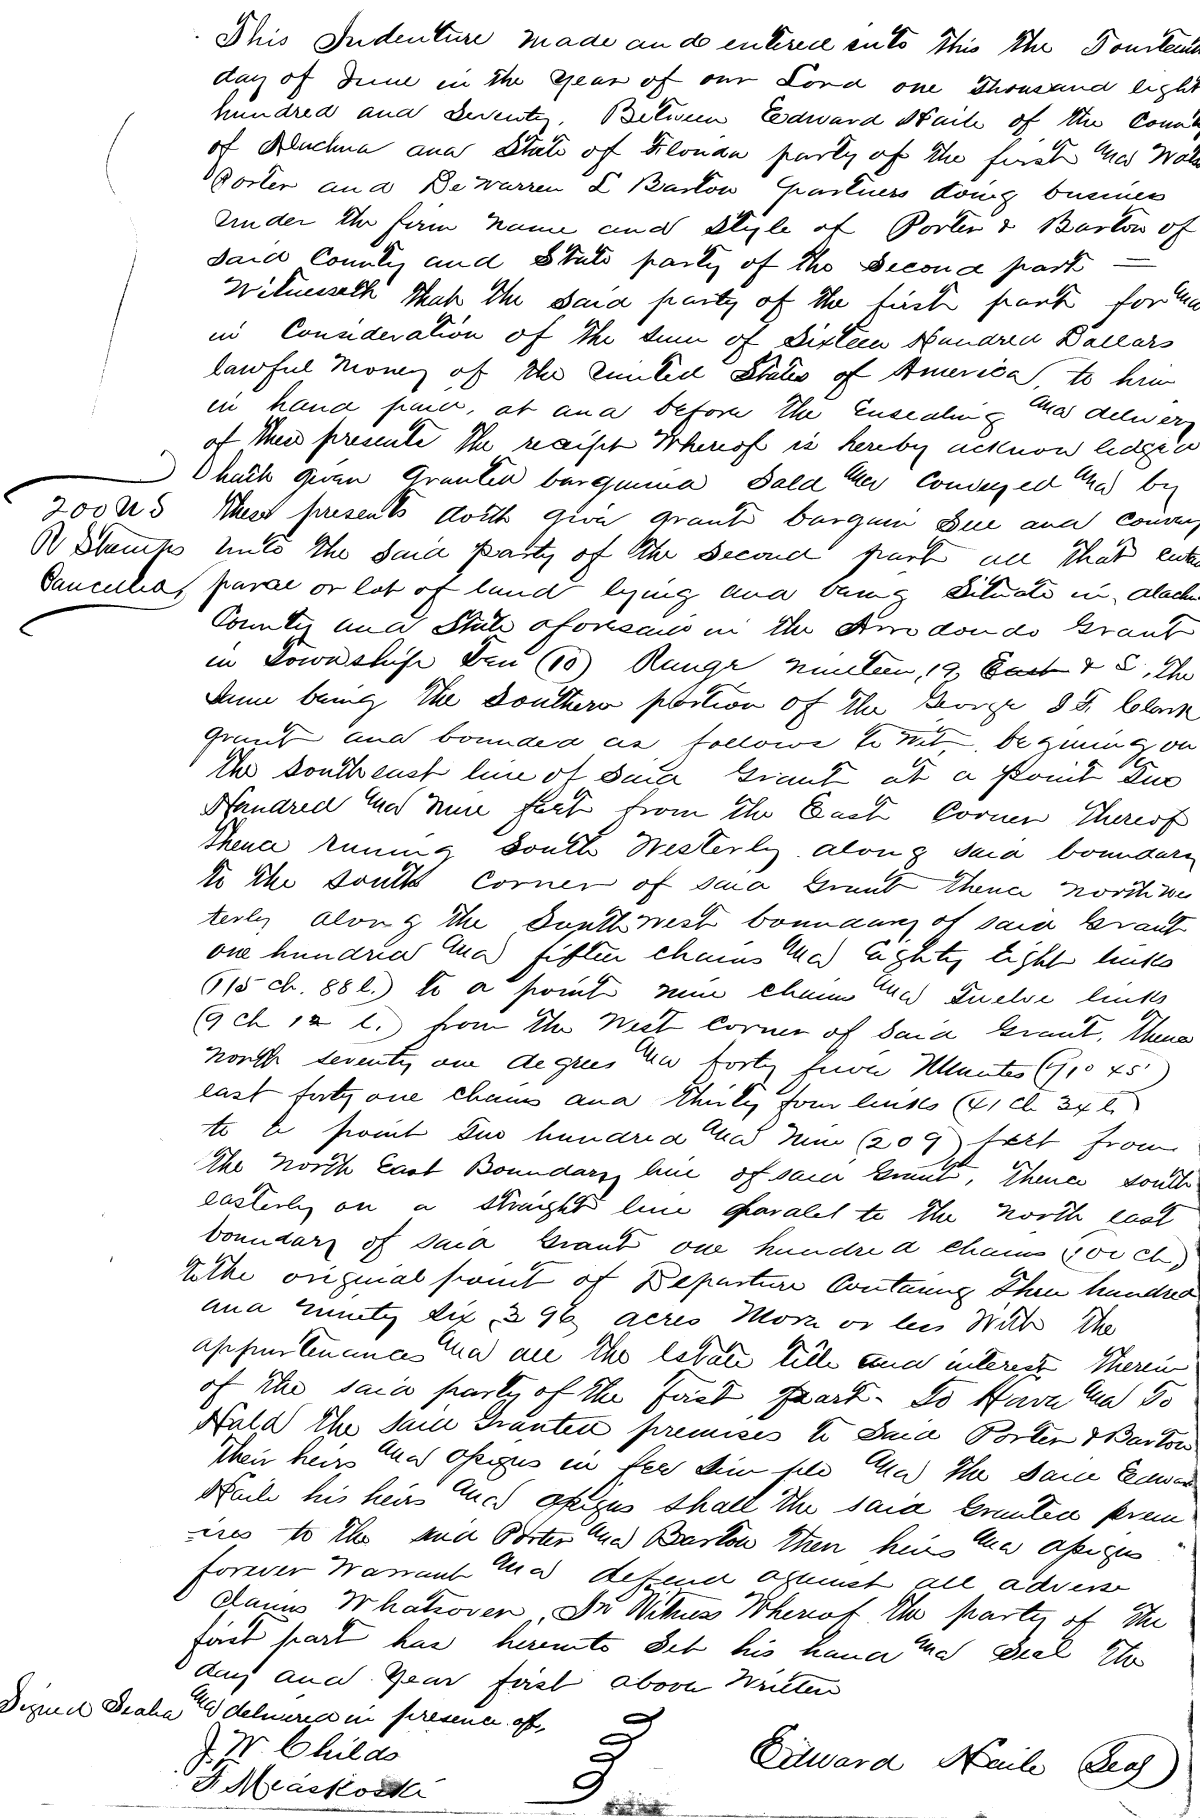 This Indenture made and entered into this the Fourteenth
day of June in the year of our Lord one Thousand eight
hundred and Seventy. Between Edward Haile of the County
of Alachua and State of Florida party of the first and
Porter and DeWarren L Barton partners doing business
under the firm name and style of Porter & Barton of
said County and State party of the Second part —
Witnesseth that the said party of the first part for and
in Consideration of the sum of Sixteen Hundred Dollars
lawful Money of the United States of America, to him
in hand paid, at and before the Ensealing and delivery
of these presents the receipt Whereof is hereby acknowledged
hath given granted bargained Sold and Conveyed and by
200 U S
R Stamps
Cancelled
these presents doth give grant bargain Sell and convey
unto the said party of the Second part all that
parcel or lot of land lying and being Situate in
County and State aforesaid in the Arredondo Grant
in Township Ten (10) Range nineteen, 19, East & S, the
Same being the Southern portion of the George J F. Clark
grant and bounded as follows to Wit, begining on
the South east line of said Grant at a point Two
Hundred and nine feet from the East Corner thereof
thence runing South Westerly along said boundary
to the south corner of said Grant thence north wes
terly along the South west boundary of said Grant
one hundred and fifteen chains and Eighty Eight links
(115 ch. 88 l.) to a point nine chains and Twelve links
(9 ch 12 l.) from the West Corner of Said Grant, thence
north seventy one degrees and forty five Minutes (71° 45')
east forty one chains and thirty four links (41 ch 34 l)
to a point Two hundred and nine (209) feet from
the north East Boundary line of said Grant, thence south
easterly on a straight line paralel to the north east
boundary of said Grant one hundred chains (100 ch,)
to the original point of Departure Containing Three hundred
and ninety six, 396 acres More or less With the
appurtenances and all the Estate title and interest therein
of the said party of the first part. To Have and To
Hold the said Granted premises to Said Porter & Barton
their heirs and assigns in fee simple and the said Edward
Haile his heirs and assigns shall the said Granted prem
ises to the said Porter and Barton their heirs and assigns
forever Warrant and defend against all adverse
claims Whatsover, In Witness Whereof the party of the
first part has hereunto Set his hand and Seal the
day and Year first above Written
Signed Sealed and delivered in presence of,
J. W. Childs
Edward Haile (Seal)